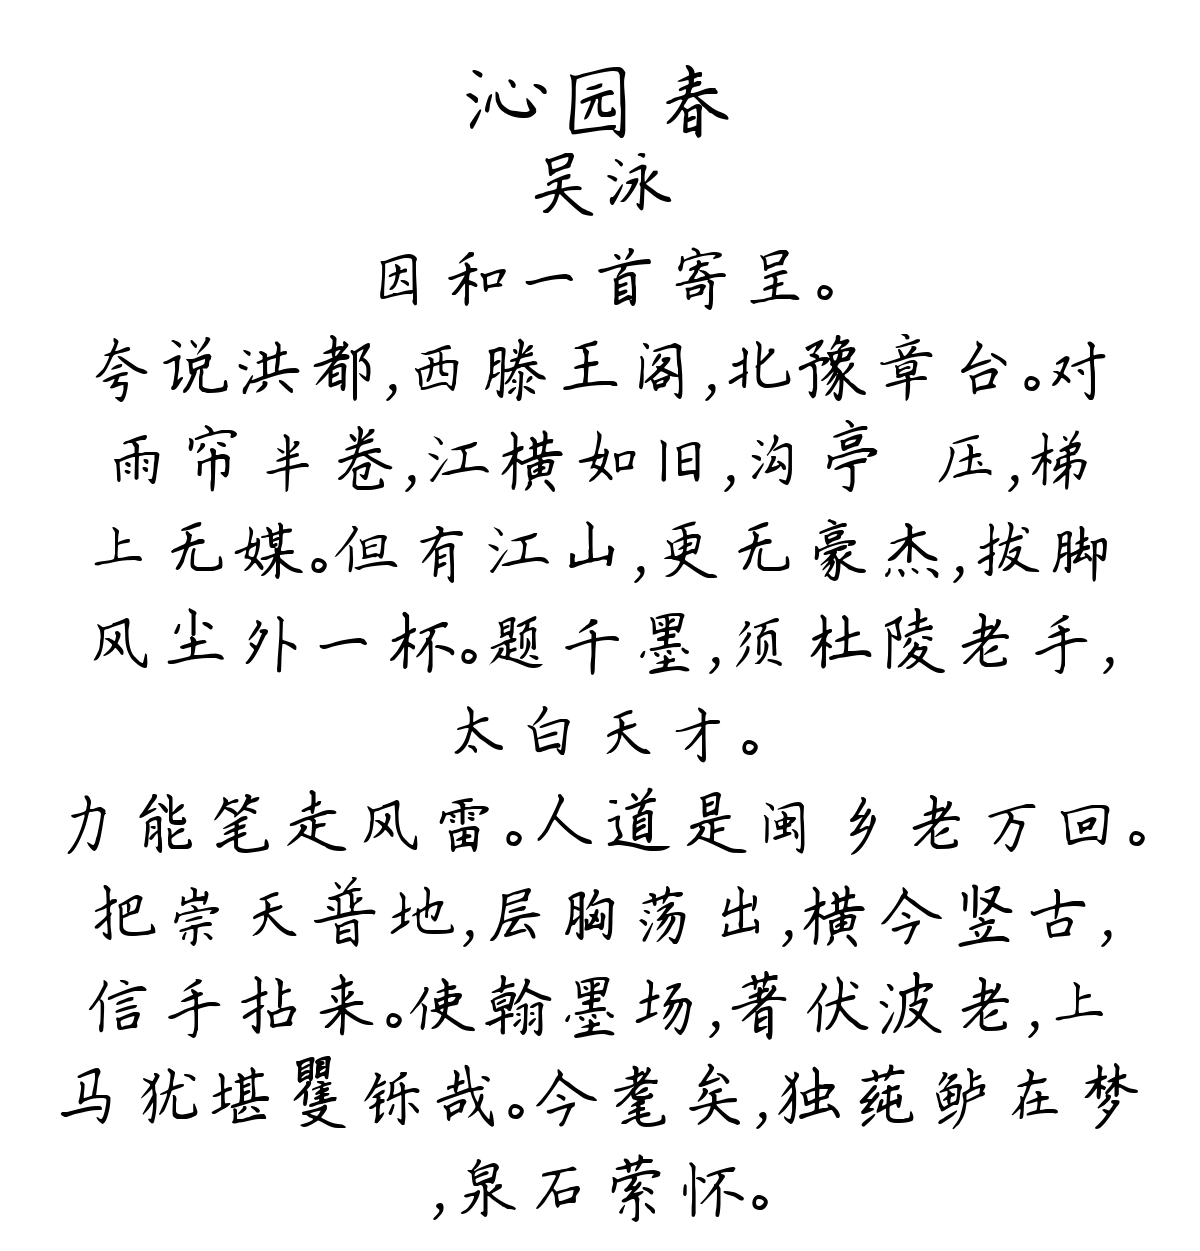 沁园春
吴泳
因和一首寄呈。
夸说洪都,西滕王阁,北豫章台。对
雨帘半卷,江横如旧,沟亭 压,梯
上无媒。但有江山,更无豪杰,拔脚
风尘外一杯。题千墨,须杜陵老手,
太白天才。
力能笔走风雷。人道是闽乡老万回。
把崇天普地,层胸荡出,横今竖古,
信手拈来。使翰墨场,著伏波老,上
马犹堪矍铄哉。今耄矣,独莼鲈在梦
,泉石萦怀。